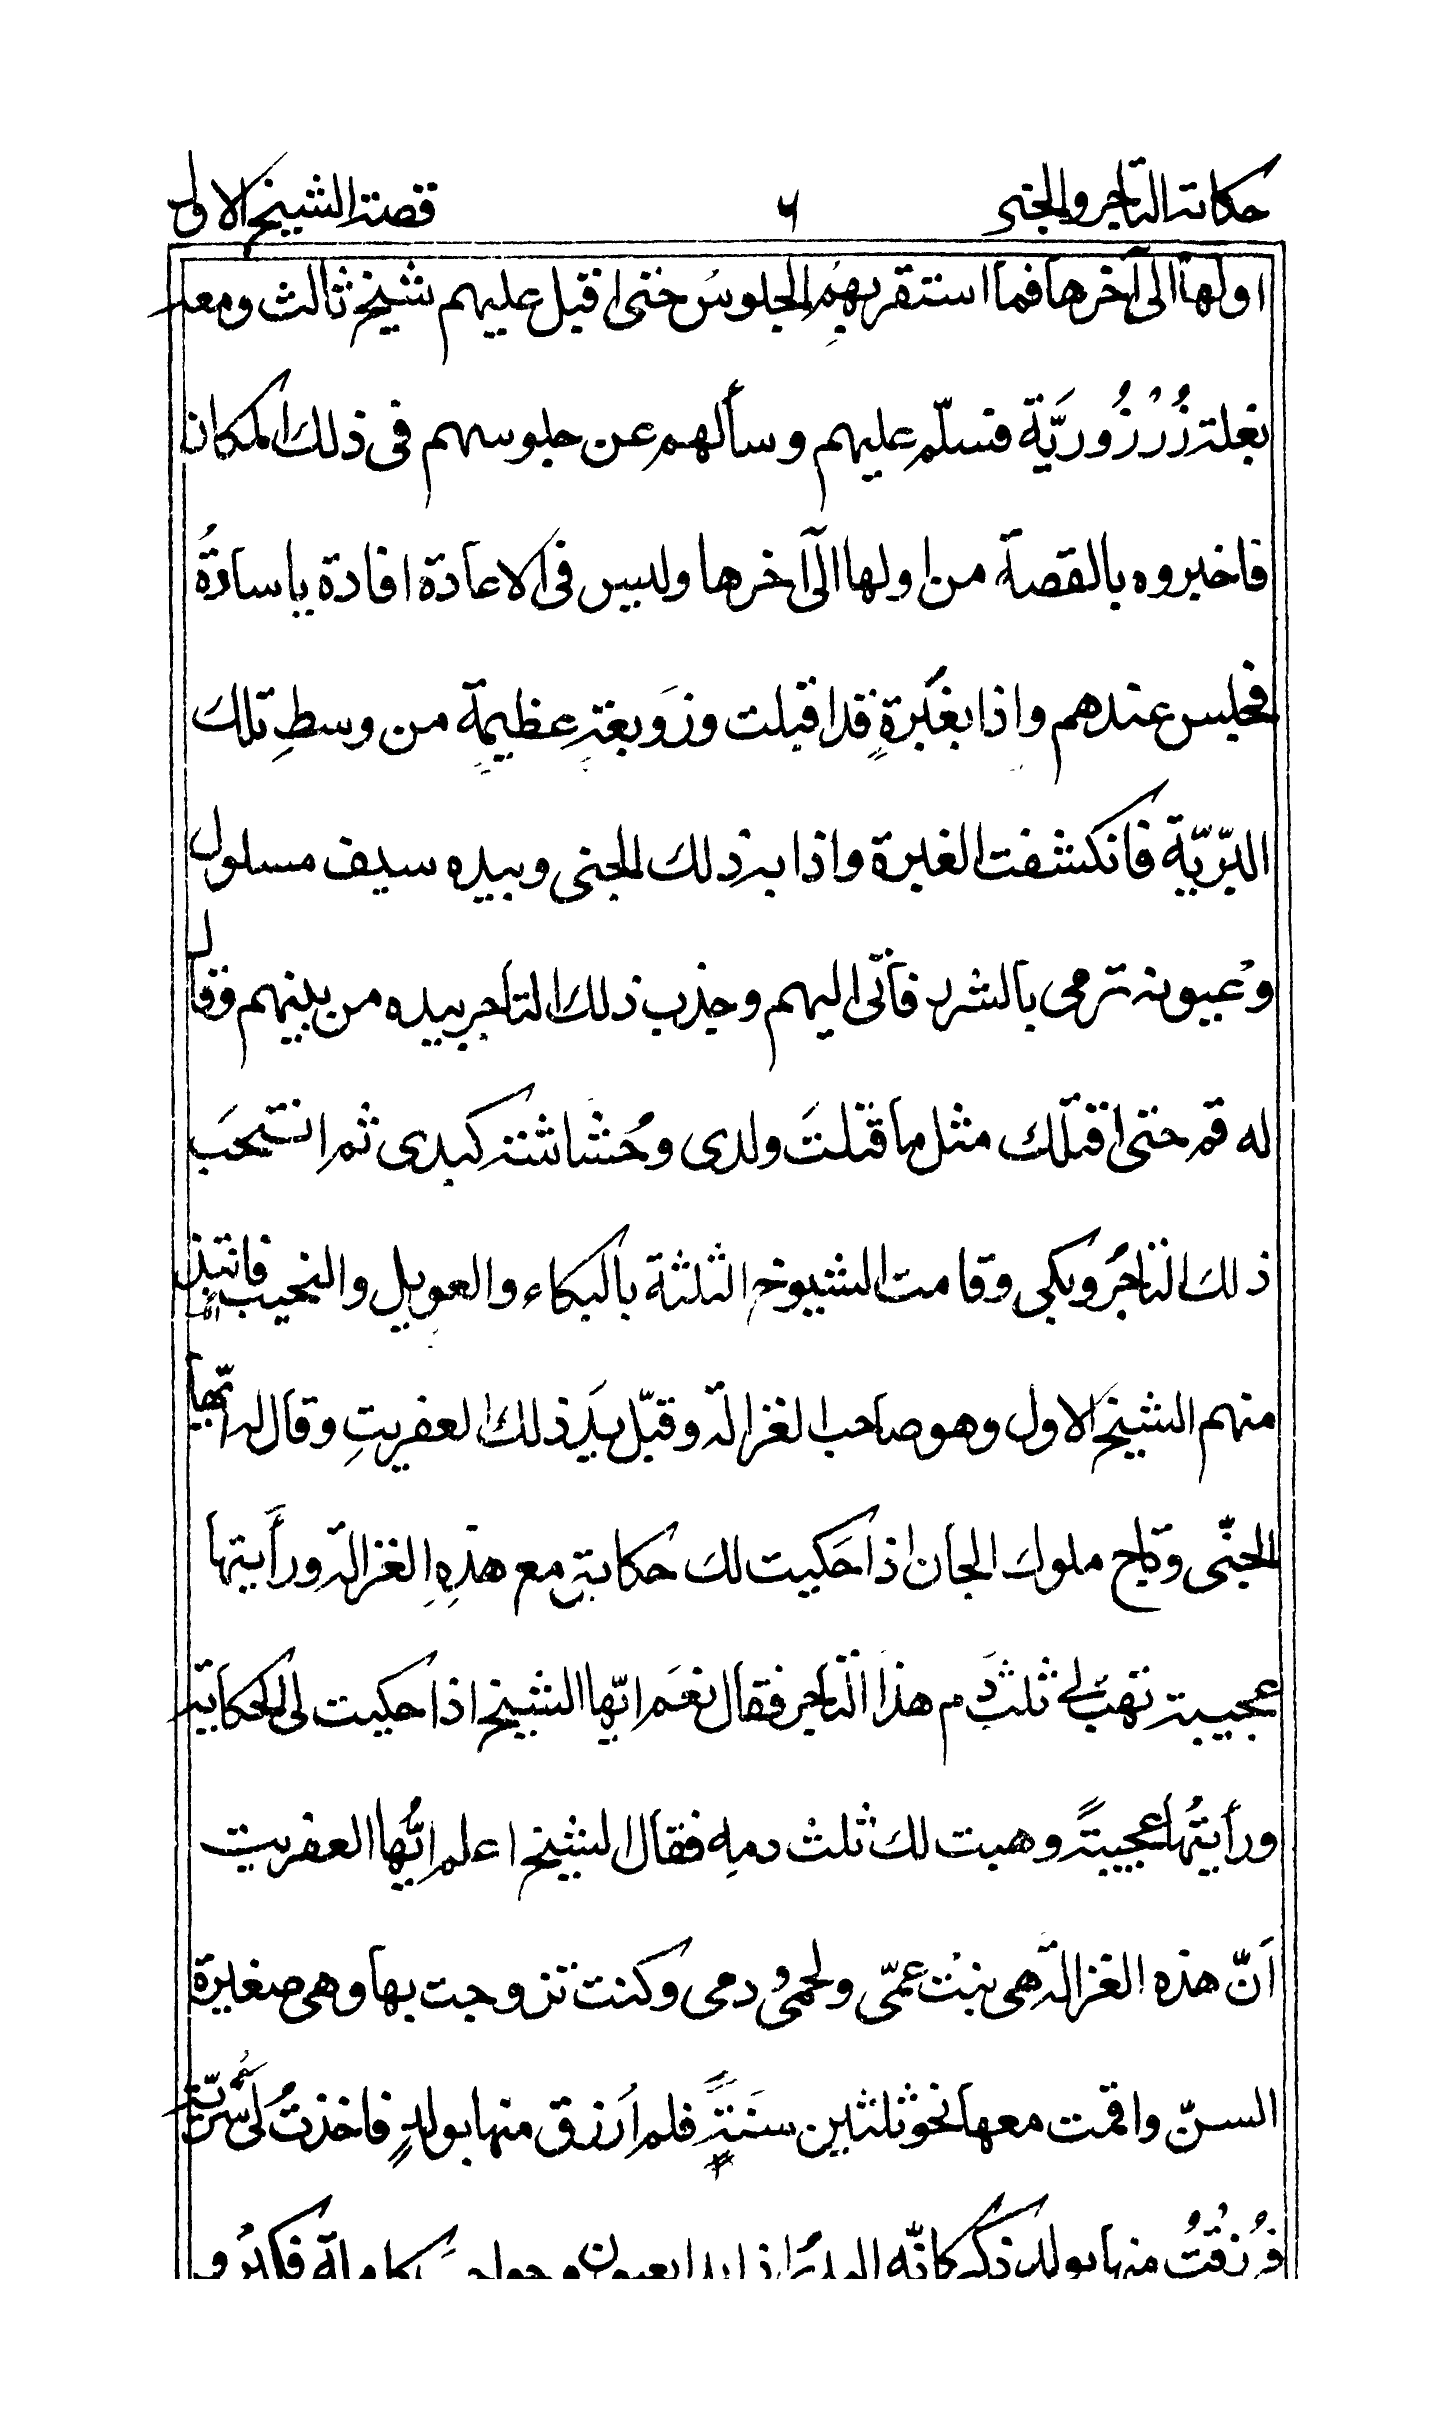 حكاية التاجر والجني ٦ قصة الشيخ الاول
اولها الى آخرها فما استقر بهم الجلوس حتى اقبل عليهم شيخ ثالث ومعه
بغلة زُرْزُوريَّة فسلّم عليهم وسألهم عن جلوسهم فى ذلك المكان
فاخبروه بالقصة من اولها الى آخرها وليس فى الاعادة افادة يا سادةُ
فجلس عندهم واذا بغَبَرةٍ قد اقبلت وزَوبعةٍ عظيمةٍ من وسطِ تلك
البّريّة فانكشفت الغبرة واذا بذلك الجنى وبيده سيف مسلول
وعُيونه ترمى بالشرر فأتى اليهم وجذب ذلك التاجر بيده من بينهم وقال
له قم حتى اقتلك مثل ما قتلتَ ولدى وحُشاشة كبدى ثم انتحبَ
ذلك التاجرُ وبكى وقامت الشيوخ الثلثة بالبكاء والعويل والنحيب فانتبذ
منهم الشيخ الاول وهو صاحب الغزالة وقبّل يدَ ذلك العفريتِ وقال له ايّها
الجنّى وتاج ملوك الجان اذا حَكيت لك حكايةٍ مع هذهِ الغزالة ورأيتها
عجيبة تهبُ لى ثلث دَم هذا التاجر فقال نعَم ايّها الشيخ اذا حكيت لى الحكاية
ورأيتُها عجيبةً وهبت لك ثلثْ دمهِ فقال الشيخ اعلم ايُّها العفريت
اَنّ هذه الغزالة هى بنتْ عمّى ولحمى ودمى وكنت تزوجت بها وهى صغيرة
السنّ واقمت معها نحو ثلثين سَنَةً فلم اُرزق منها بولدٍ فاخذتُ لى سُرّيّة
فرُزقْتُ منها بولد ذكر كانّه البدرُ اذا بدا بعيون وحواجب كاملة فكبرُ و